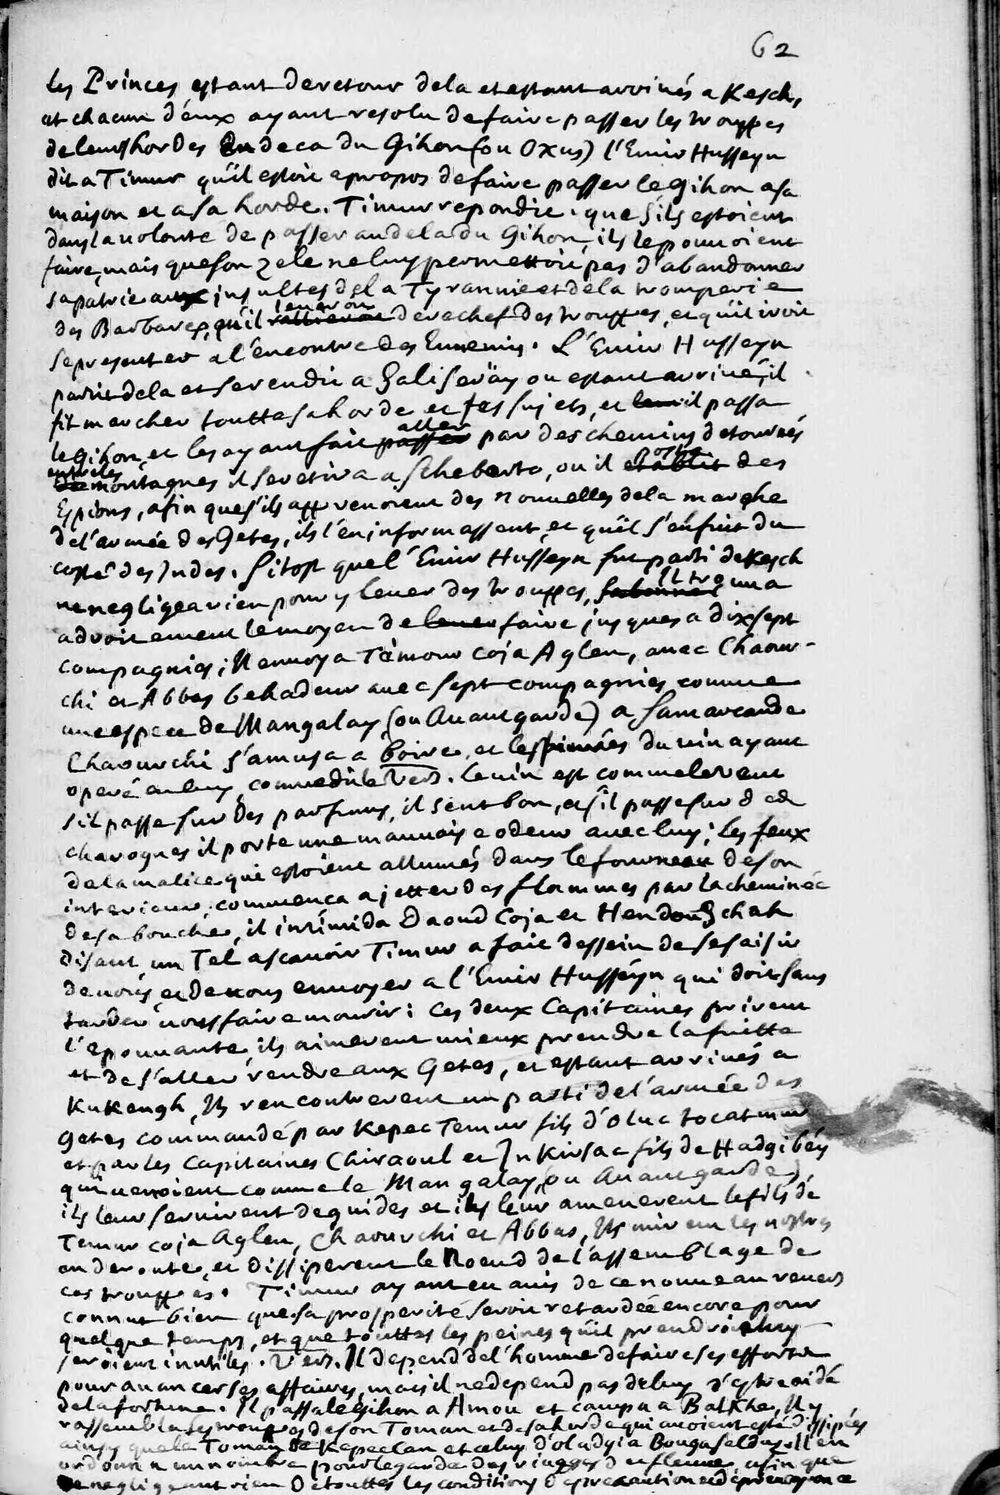 62
les Princes estant de retour de la et estant arrivés a Kesch,
et chacun d'eux ayant resolu de faire passer les trouppes
de leurs hordes En deca du Gihon (ou Oxus) l'Emir Husseyn
dit a Timur qu'il estoit apropos de faire passer le Gihon a sa
maison et a sa horde. Timur repondit, que s'ils estoient
dans la volonte de passer au dela du Gihon, ils le pouvoient
faire, mais que son zele ne luy permettoit pas d'abandonner
sa patrie aux insultes de la Tyrannie et de la tromperie
des Barbares, qu'il leveroit derechef des trouppes, et qu'il iroit
se presenter a l'encontre des Ennemis. L'Emir Husseyn
partit de la et se rendit a Saliseray ou estant arrivé, il
fit marcher toutte sa horde et ses sujets, et il passa
le Gihon, et les ayant fait aller par des chemins detournés
entre les montagnes il se retira a Scheberto, ou il posta des
Espions, afin que s'ils apprenoient des nouvelles de la marche
de l'armée des Getes, ils l'en informassent, et qu'il s'enfuit du
costé des Indes. Sitost que l'Emir Husseyn fut parti de Kesch
ne negligea rien pour y lever des trouppes, il trouva
adroitement le moyen de faire jusques a dix sept
compagnies; Il envoya Témour Coja Aglen, avec Chaour-
chi et Abbas behadeur avec sept compagnies comme
une espece de Mangalay (ou Avantgarde) a Samarcande
Chaourchi s'amusa a boire, et les fumées du vin ayant
operé en luy, comme dit le Vers. le vin est comme le vent
s'il passe sur des parfums, il sent bon, et s'il passe sur des
charognes il porte une mauvaise odeur avec luy; les feux
de la malice qui estoient allumés dans le fourneau de son
interieur, commenca a jetter des flammes par la cheminée
de sa bouche, il intimida Daoud Coja et Hendouschah
disant, un Tel a scavoir Timur a fait dessein de se saisir
de vous, et de vous envoyer a l'Emir Husseyn qui doit sans
tarder vous faire mourir: ces deux Capitaines prirent
l'epouvante, ils aimerent mieux prendre la fuitte
et de s'aller rendre aux Getes, et estant arrivés a
Kukengh, Ils rencontrerent un parti de l'armée des
Getes commandé par Kepec Temur fils d'Oluc tocatmur
et par les Capitaines Chiraoul et Inkirsac fils de Hadgibey
qui venoient comme le Mangalay, (ou Avantgarde)
ils leur servirent de guides et ils leur amenerent le fils de
Temur Coja Aglen, Chaourchi et Abbas, Ils mirent les nostres
en deroute, et dissiperent le Noeud de l'assemblage de
ces trouppes. Timur ayant eu avis de ce nouveau revers
connut bien que sa prosperité seroit retardée encore pour
quelque temps, et que touttes les peines qu'il prendroit
seroient inutiles. Vers. Il depend de l'homme de faire ses efforts
pour avancer ses affaires, mais il ne depend pas de luy d'estre aidé
de la fortune. Il passa le Gihon a Amou et campa a Balkhe, Il y
rassembla les trouppes de son Toman et de sa horde qui avoient esté dissipées
ainsy que le Toman de Kepeclan et celuy d'Oladgia Bougaseldus. Il en
ordonna un nombre pour la garde des rivages du fleuve, afin que
ne negligeant rien de touttes les conditions de precaution et de prevoyance